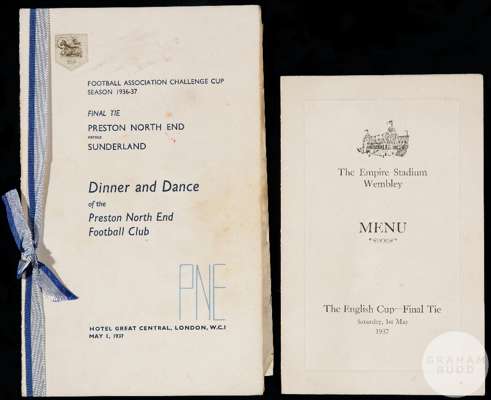 FOOTBALL ASSOCIATION CHALLENGE CUP
SEASON 1936-37
FINAL TIE
PRESTON NORTH END
versus
SUNDERLAND
Dinner and Dance
of the
Preston North End
Football Club
PNE
HOTEL GREAT CENTRAL, LONDON, W.C.1
MAY 1, 1937
The Empire Stadium
Wembley
MENU
The English Cup—Final Tie
Saturday, 1st May
1937
GRAHAM
BUDD